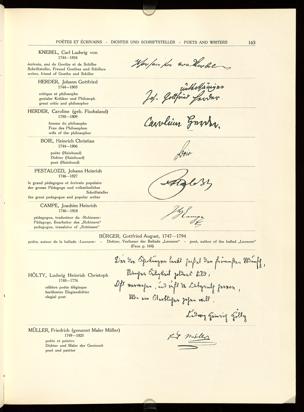 POÈTES ET ÉCRIVAINS - DICHTER UND SCHRIFTSTELLER - POETS AND WRITERS 163
KNEBEL, Carl Ludwig von
1744—1834
écrivain, ami de Goethe et de Schiller
Schriftsteller, Freund Goethes und Schillers
writer, friend of Goethe and Schiller
HERDER, Johann Gottfried
1744—1803
critique et philosophe
genialer Kritiker und Philosoph
great critic and philosopher
Joh. Gottfried Herder
HERDER, Caroline (geb. Flachsland)
1750—1809
femme du philosophe
Frau des Philosophen
wife of the philosopher
Carolina Herder.
BOIE, Heinrich Christian
1744—1806
poète (Hainbund)
Dichter (Hainbund)
poet (Hainbund)
Boie
PESTALOZZI, Johann Heinrich
1746—1827
le grand pédagogue et écrivain populaire
der grosse Pädagoge und volkstümliche
Schriftsteller
the great pedagogue and popular writer
Pestalozzi
CAMPE, Joachim Heinrich
1746—1818
pédagogue, traducteur du „Robinson"
Pädagoge, Bearbeiter des „Robinson"
pedagogue, translator of „Robinson"
Campe
BÜRGER, Gottfried August, 1747—1794
poète, auteur de la ballade „Lenore" - Dichter, Verfasser der Ballade „Lenore" - poet, author of the ballad „Lenore"
HÖLTY, Ludwig Heinrich Christoph
1748—1776
célèbre poète élégiaque
berühmter Elegiendichter
elegiac poet
MÜLLER, Friedrich (genannt Maler Müller)
1749—1825
poète et peintre
Dichter und Maler der Geniezeit
poet and painter
Müller